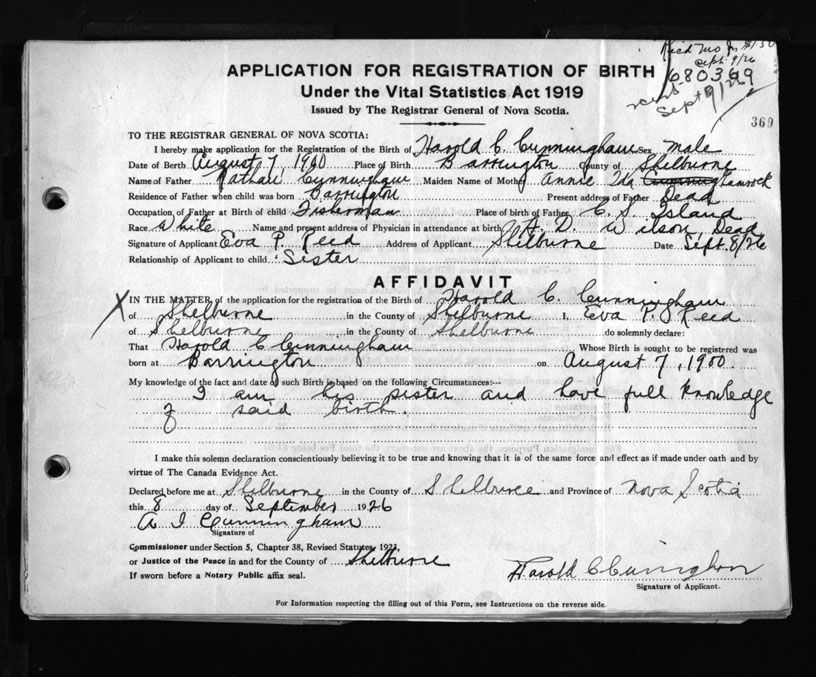 Recd Mo Or $1.50
Sept 9/26
APPLICATION FOR REGISTRATION OF BIRTH
680369
Under the Vital Statistics Act 1919
Sept 9/26
Issued by The Registrar General of Nova Scotia.
369
TO THE REGISTRAR GENERAL OF NOVA SCOTIA:
I hereby make application for the Registration of the Birth of Harold C. Cunningham Sex male
Date of Birth August 7, 1900 Place of Birth Barrington County of Shelburne
Name of Father Nathan Cunningham Maiden Name of Mother Annie Ida
Residence of Father when child was born Barrington Present address of Father Dead
Occupation of Father at Birth of child Fisherman Place of birth of Father C. S. Island
Race White Name and present address of Physician in attendance at birth A. D. Wilson, Dead
Signature of Applicant Eva P. Reed Address of Applicant Shelburne Date Sept. 8/26
Relationship of Applicant to child Sister
AFFIDAVIT
X IN THE MATTER of the application for the registration of the Birth of Harold C. Cunningham
of Shelburne in the County of Shelburne I, Eva P. Reed
of Shelburne in the County of Shelburne do solemnly declare:
That Harold C Cunningham Whose Birth is sought to be registered was
born at Barrington on August 7, 1900.
My knowledge of the fact and date of such Birth is based on the following Circumstances:—
I am his sister and have full knowledge
of said birth.
I make this solemn declaration conscientiously believing it to be true and knowing that it is of the same force and effect as if made under oath and by
virtue of The Canada Evidence Act.
Declared before me at Shelburne in the County of Shelburne and Province of Nova Scotia
this 8 day of September 1926
A I Cunningham
Signature of
Commissioner under Section 5, Chapter 38, Revised Statutes, 1923,
or Justice of the Peace in and for the County of Shelburne
Harold C Cunningham
If sworn before a Notary Public affix seal.
Signature of Applicant.
For Information respecting the filling out of this Form, see Instructions on the reverse side.